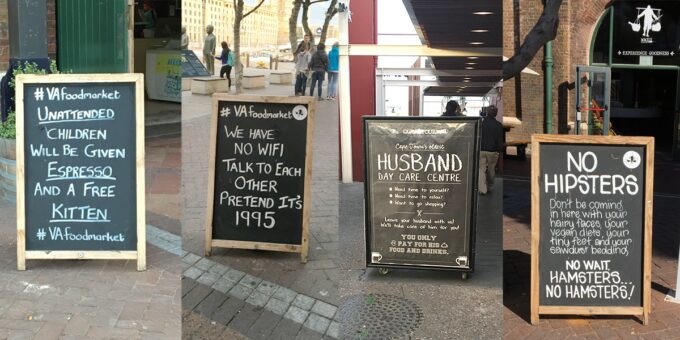 #VAfoodmarket
UNATTENDED
CHILDREN
WILL BE GIVEN
ESPRESSO
AND A FREE
KITTEN
#VAfoodmarket
#VAfoodmarket
WE HAVE
NO WIFI
TALK TO EACH
OTHER
PRETEND IT'S
1995
Cape Town's oldest
HUSBAND
DAY CARE CENTRE
Need time to yourself?
Need time to relax?
Want to go shopping?
Leave your husband with us!
We'll take care of him for you!
YOU ONLY
PAY FOR HIS
FOOD AND DRINKS.
EXPERIENCE GOODNESS
NO
HIPSTERS
Don't be coming
in here with your
hairy faces, your
vegan diets, your
tiny feet and your
sawdust bedding.
NO WAIT,
HAMSTERS...
NO HAMSTERS!